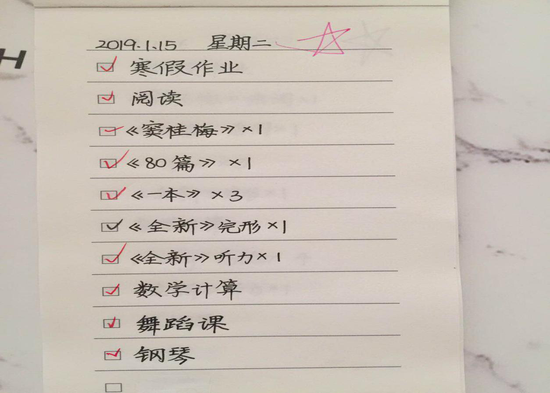 H
2019.1.15 星期二
寒假作业
阅读
《窦桂梅》×1
《80篇》×1
《一本》×3
《全新》完形×1
《全新》听力×1
数学计算
舞蹈课
钢琴